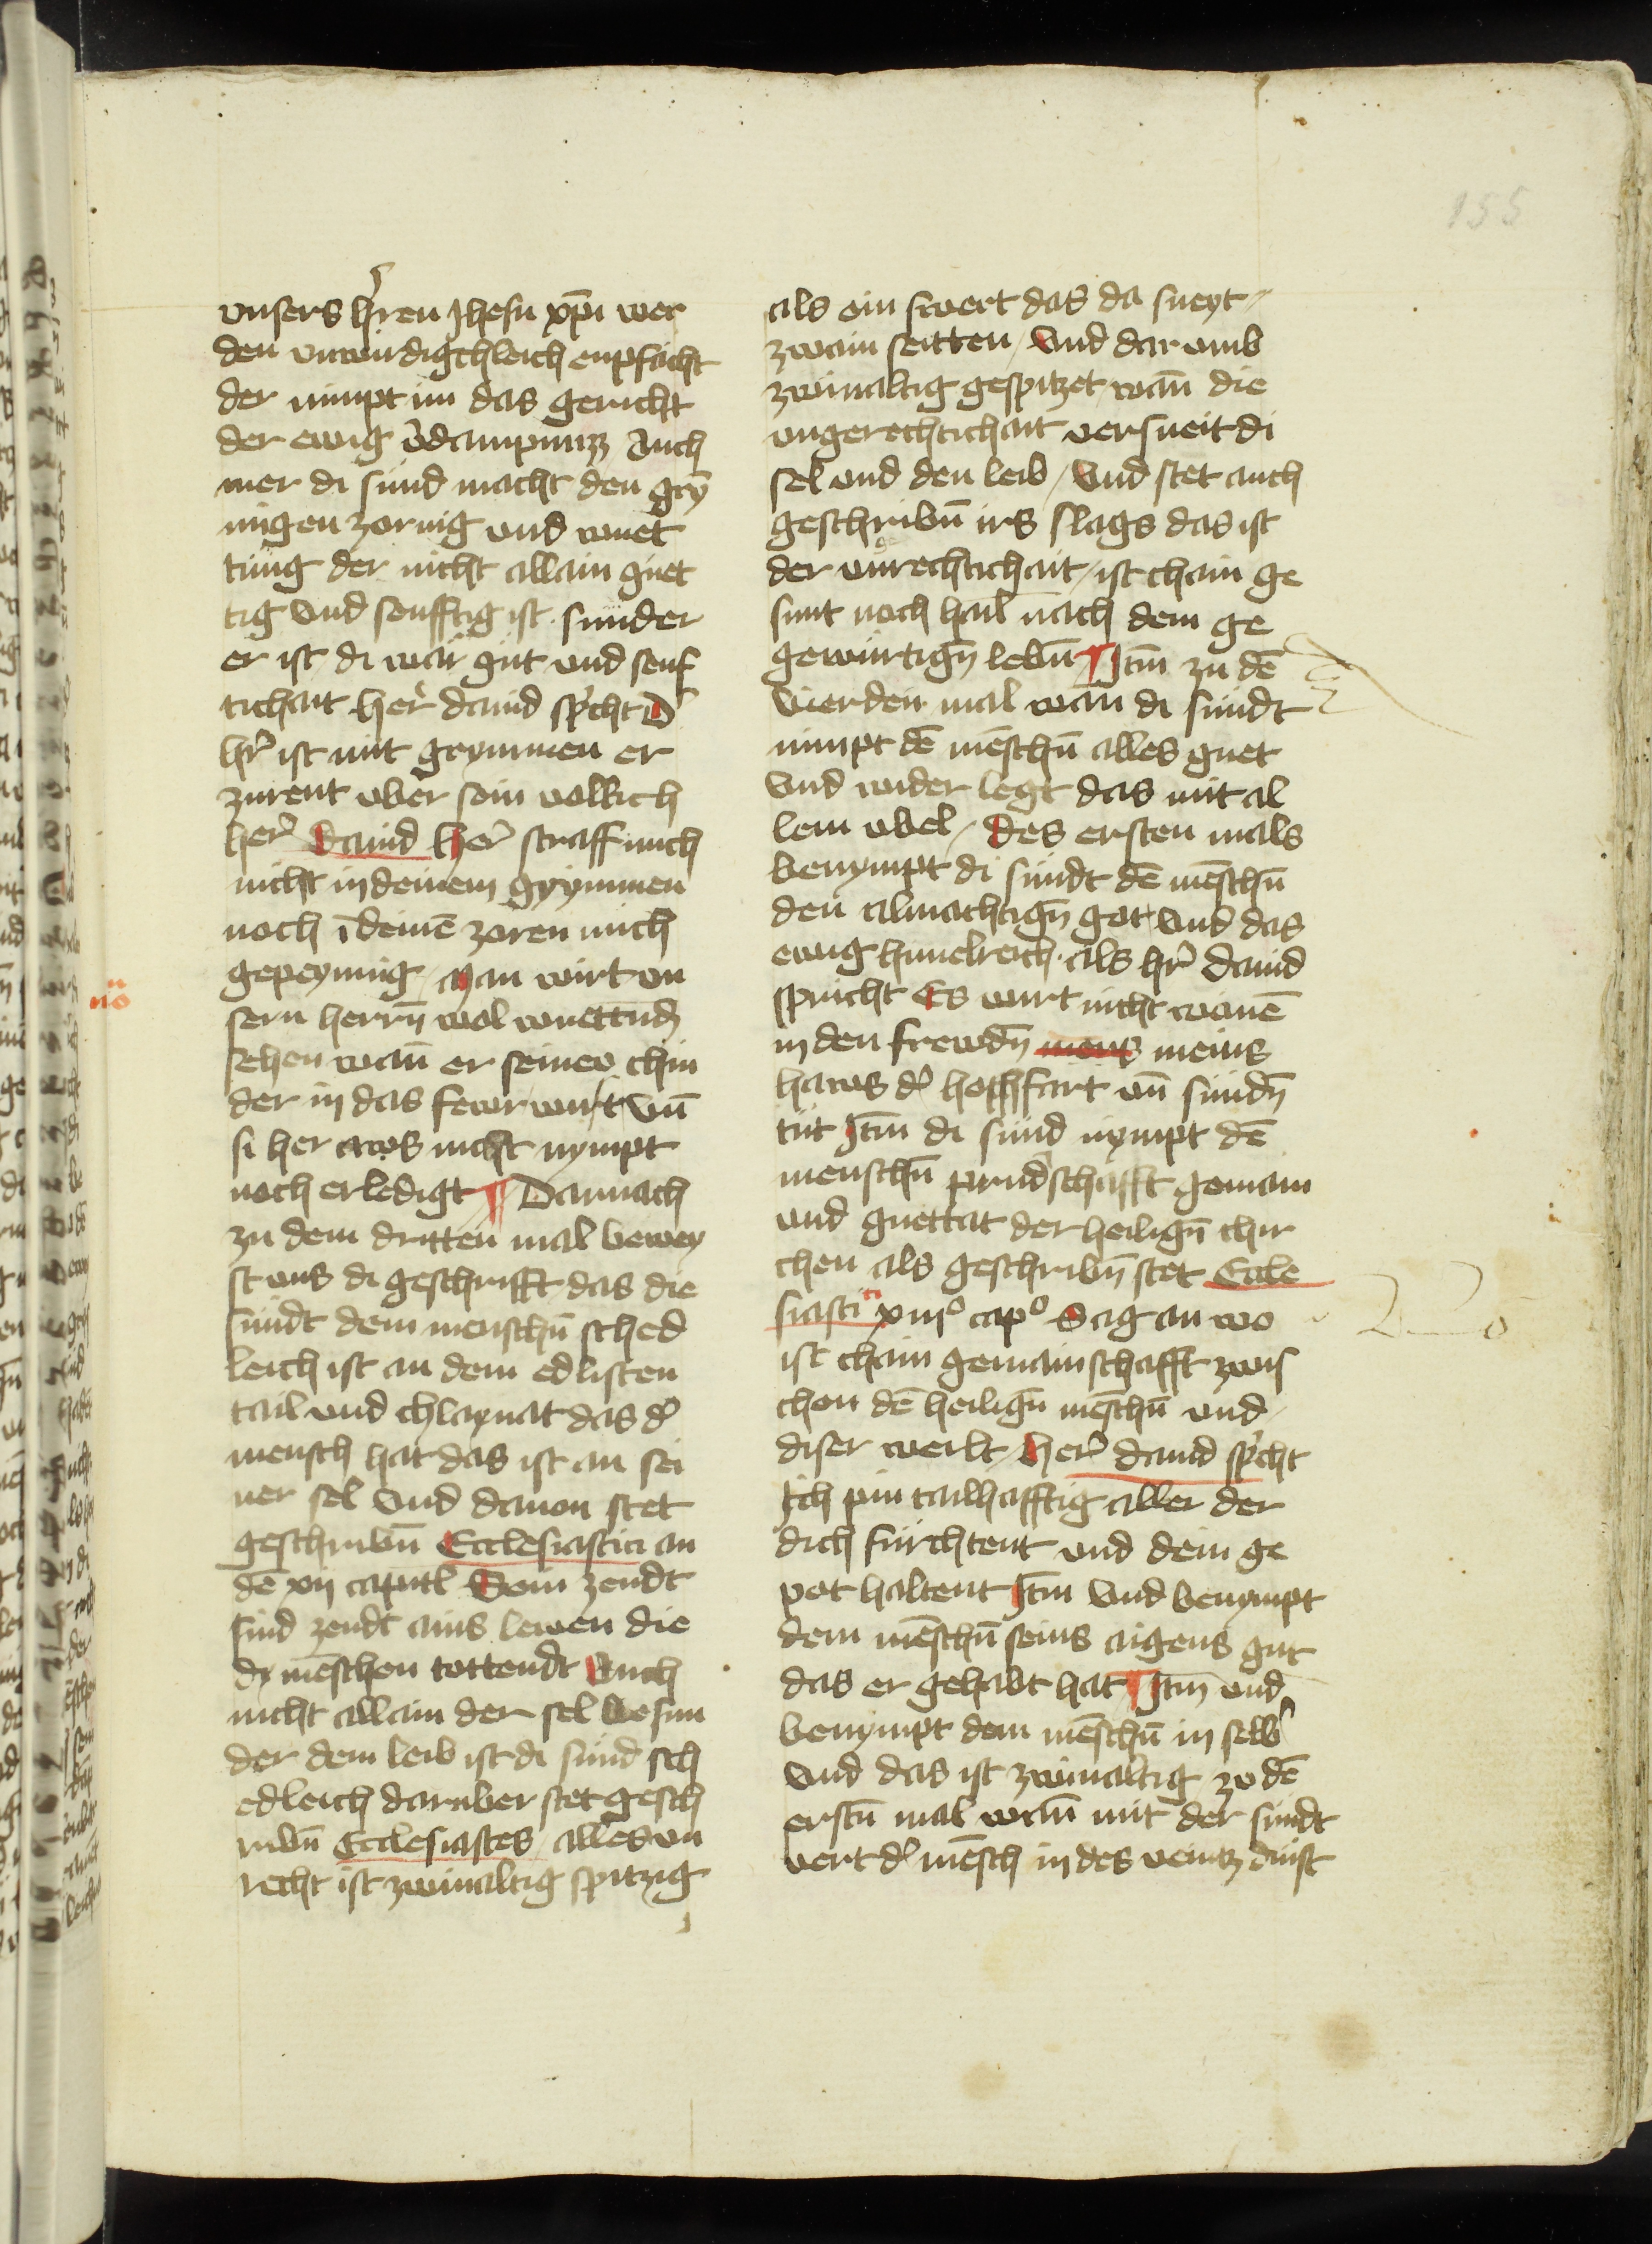 155
vnsers hren Jhesu xp̄i wer
den vnwirdigchleich enpfächt
der nimpt im das gericht
der ewig v̓dampnuzz Auch
mer di sünd macht den gry̅
migen zornig vnd wuet
tung der nicht allain güet
tig vnd senfftig ist sunder
er ist di war güt vnd senf
tichait her̓ dauid sp̓cht D̓
hr̓ ist mit grymmen er
zurent vber sein volkch
her̓ dauid her̓ straff mich
nicht in deinem grymmen
noch ī deinē zoren mich
gepeynnig Man wirt vn
sern herrn̄ wol wuettund
sehen wan̄ er seinew chin
der in das fewr wirft vn̄
si her aws nicht nympt
noch erledigt ¶ Darnach
zu dem dritten mal bewey
st vns di geschrifft das die
sündt dem menschn̄ sched
leich ist an dem edlisten
tail vnd chlaynat das d̓
mensch hat das ist an sei
ner sel vnd dauon stet
geschribn̄ Ecclesiastici an
dē xxj capitl Sein zendt
sind zendt ains lewen die
dy mēschen tottendt Auch
nicht allain der sel besun
der dem leib ist di sünd sch
edleich daruber stet gesch
ribn̄ Ecclesiastes alles vn
recht ist zwiualtig spitzig
als ein swert das da sneyt
zwain seitten vnd dar vmb
zwiualtig gespitzet wan̄ die
vngerechtichait versneit di
sel vnd den leib vnd stet auch
geschribn̄ irs slags das ist
der vnrechtichait ist chain ge
sunt noch hail nach dem ge
gewürtign̄ lebn̄ ¶ Itm̄ zu dē
vierden mal wan̄ di sündt
nimpt dē mēschn̄ alles guet
vnd wider legt das mit al
lem vbel des ersten mals
benympt di sündt dē mēschn̄
den almachtign̄ got vnd das
ewig himelreich als hr̓ dauid
spricht Es wirt nicht wonē
in den frewdn̄ meins
haws d̓ hochfart vn̄ sündn̄
tüt Itm̄ di sünd nympt dē
menschn̄ prud̓schafft gemain
vnd guettat der heilign̄ chir
chen als geschribn̄ stet Eccle
siasti ci xiij° cap° Sag an wo
ist chain gemainschafft zwis
chen dē heilign̄ mēschn̄ vnd
diser werlt her̓ dauid sp̓cht
Ich pin tailhafftig aller der
dich fürchtent vnd dein ge
pot haltent Itm̄ vnd benympt
dem mēschn̄ seins aigens gut
das er gehabt hat ¶ Itm̄ vnd
benympt dem mēschn̄ in selb̓
vnd das ist zwiualtig zu dē
erstn̄ mal wan̄ mit der sündt
vert d̓ mēsch in des veintz dinst